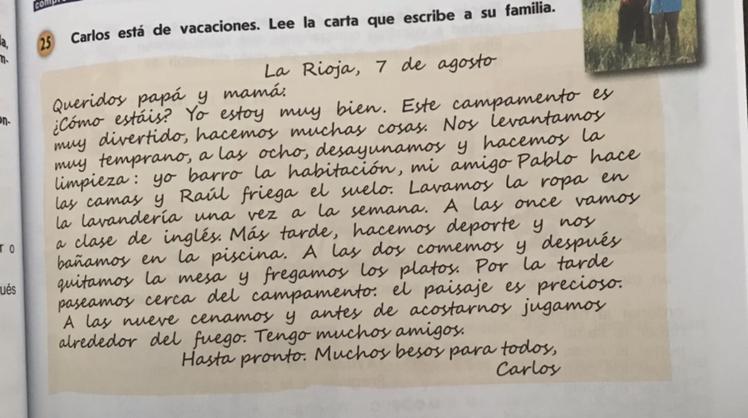 25 Carlos está de vacaciones. Lee la carta que escribe a su familia.
La Rioja, 7 de agosto
Queridos papá y mamá:
¿Cómo estáis? Yo estoy muy bien. Este campamento es
muy divertido, hacemos muchas cosas. Nos levantamos
muy temprano, a las ocho, desayunamos y hacemos la
limpieza: yo barro la habitación, mi amigo Pablo hace
las camas y Raúl friega el suelo. Lavamos la ropa en
la lavandería una vez a la semana. A las once vamos
a clase de inglés. Más tarde, hacemos deporte y nos
bañamos en la piscina. A las dos comemos y después
quitamos la mesa y fregamos los platos. Por la tarde
paseamos cerca del campamento: el paisaje es precioso.
A las nueve cenamos y antes de acostarnos jugamos
alrededor del fuego. Tengo muchos amigos.
Hasta pronto. Muchos besos para todos,
Carlos